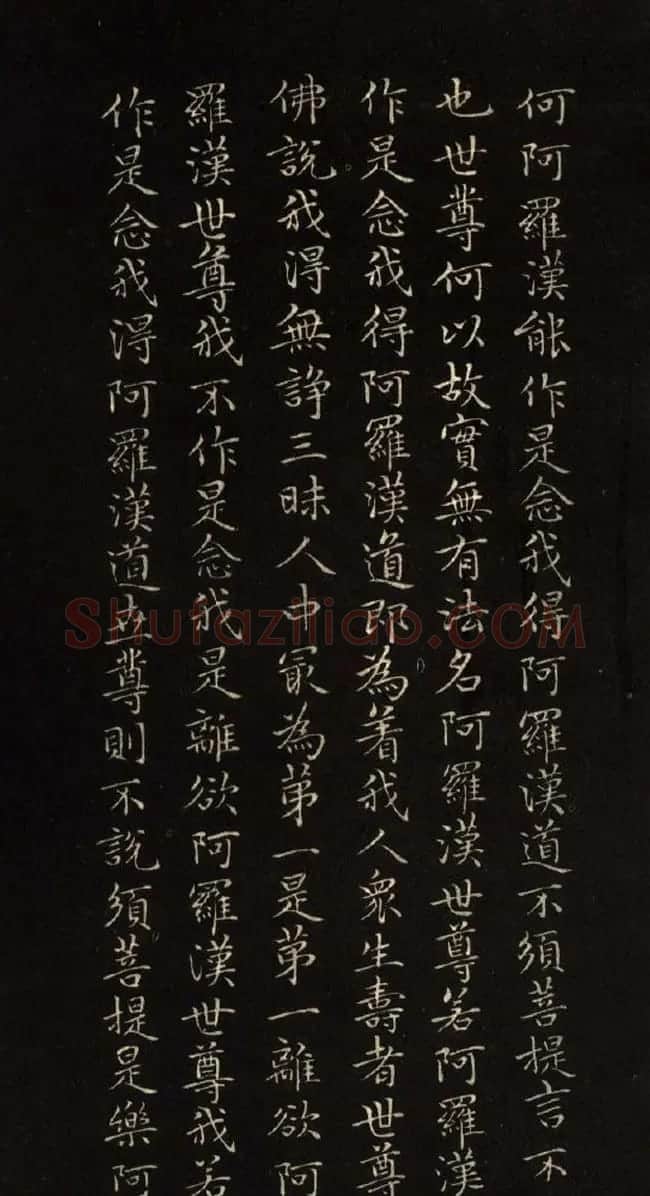 何阿羅漢能作是念我得阿羅漢道不須菩提言不
也世尊何以故實無有法名阿羅漢世尊若阿羅漢
作是念我得阿羅漢道即為着我人衆生壽者世尊
佛說我得無諍三昧人中冣為第一是第一離欲阿
羅漢世尊我不作是念我是離欲阿羅漢世尊我若
作是念我得阿羅漢道世尊則不說須菩提是樂阿
Shufaziliao.COM